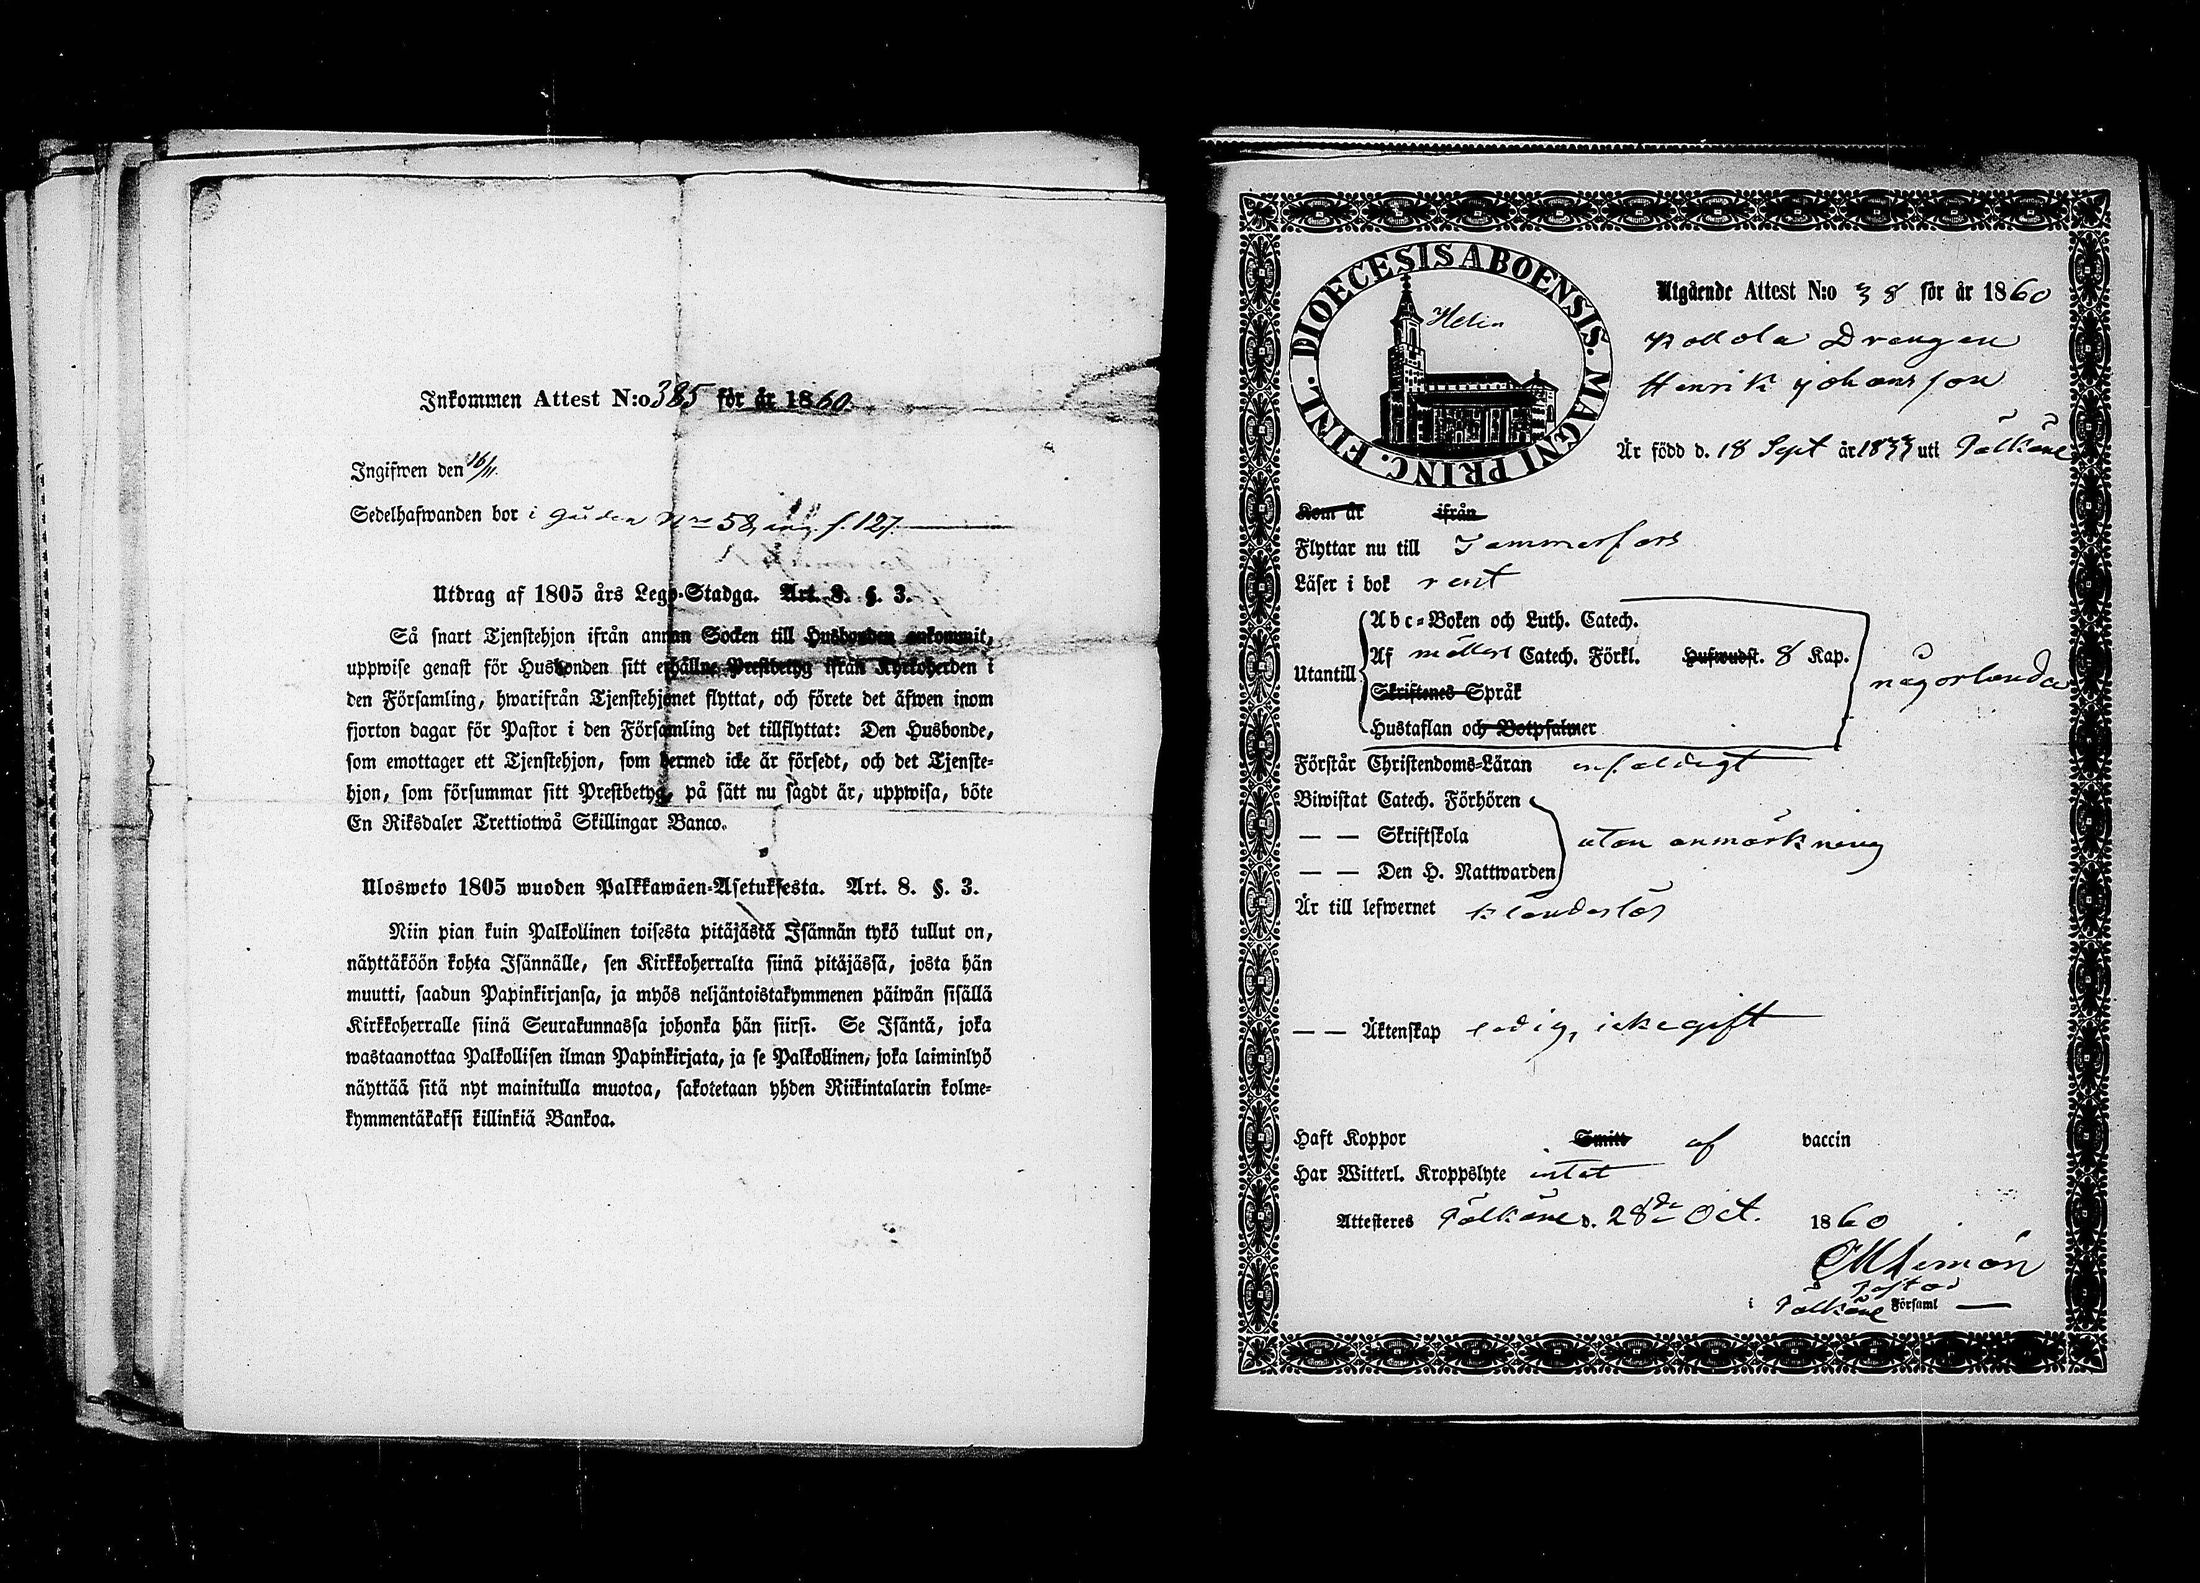 Inkommen Attest N:o 385 för år 1860.
Ingifwen den 16/11.
Sedelhafwanden bor i gården N:ro 58, f. 127.
Utdrag af 1805 års Lego-Stadga. Art. 8. §. 3.
Så snart Tjenstehjon ifrån annan Socken till Husbonden ankommit,
uppwise genast för Husbonden sitt erhållne Prestbetyg ifrån Kyrkoherden i
den Församling, hwarifrån Tjenstehjonet flyttat, och förete det äfwen inom
fjorton dagar för Pastor i den Församling det tillflyttat: Den Husbonde,
som emottager ett Tjenstehjon, som dermed icke är försedt, och det Tjenste-
hjon, som försummar sitt Prestbetyg, på sätt nu sagdt är, uppwisa, böte
En Riksdaler Trettiotwå Skillingar Banco.
Ulosweto 1805 wuoden Palkkawäen-Asetuksesta. Art. 8. §. 3.
Niin pian kuin Palkollinen toisesta pitäjästä Isännän tykö tullut on,
näyttäköön kohta Isännälle, sen Kirkkoherralta siinä pitäjässä, josta hän
muutti, saadun Papinkirjansa, ja myös neljäntoistakymmenen päiwän sisällä
Kirkkoherralle siinä Seurakunnassa johonka hän siirsi. Se Isäntä, joka
wastaanottaa Palkollisen ilman Papinkirjata, ja se Palkollinen, joka laiminlyö
näyttää sitä nyt mainitulla muotoa, sakotetaan yhden Riikintalarin kolme-
kymmentäkaksi killinkiä Bankoa.
DIOECESIS ABOENSIS. MAGNI PRINC. FINL.
Helin
Utgående Attest N:o 38 för år 1860
Drengen
Henrik Johansson
Är född d. 18 Sept år 1833 uti Pälkäne
Kom år ifrån
Flyttar nu till Tammerfors
Läser i bok rent
Utantill
Abc-Boken och Luth. Catech.
Af möllers Catech. Förkl. Hufwudst. 8 Kap.
Skriftenes Språk
Hustaflan och Botpsalmer
någorlunda
Förstår Christendoms-Läran enfaldigt
Biwistat Catech. Förhören
— — Skriftskola
— — Den H. Nattwarden
utan anmärkning
Är till lefwernet klanderlös
— — Äktenskap ledig, icke gift
Haft Koppor Smitt af vaccin
Har Witterl. Kroppslyte intet
Attesteres Pälkäne d. 28de Oct. 1860
Pastor
i Pälkäne Församl